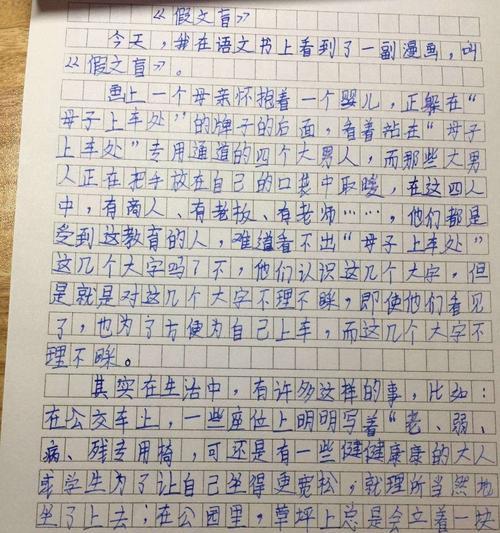 《假文盲》
今天,我在语文书上看到了一副漫画,叫
《假文盲》。
画上一个母亲怀抱着一个婴儿,正躲在“
母子上车处”的牌子的后面,看着站在“母子
上车处”专用通道的四个大男人,而那些大男
人正在把手放在自己的口袋中取暖,在这四人
中,有商人、有老板、有老师……,他们都是
受到这教育的人,难道看不出“母子上车处”
这几个大字吗?不,他们认识这几个大字,但
是就是对这几个大字不理不睬,即使他们看见
了,也为了方便为自己上车,而这几个大字不
理不睬。
其实在生活中,有许多这样的事,比如:
在公交车上,一些座位上明明写着“老、弱、
病、残专用椅,可还是有一些健健康康的大人
或学生为了让自己坐得更宽松,就理所当然地
坐了上去;在公园里,草坪上总是会立着一块